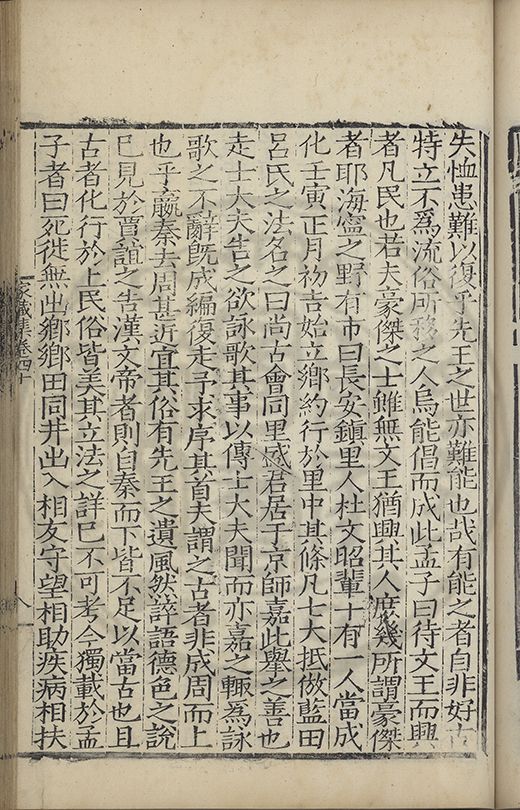 失恤患難以復乎先王之世亦難能也哉有能之者自非好古
特立不為流俗所務之人烏能倡而成此孟子曰待文王而興
者凡民也若夫豪傑之士雖無文王猶興其人庶幾所謂豪傑
者耶海寧之野有市曰長安鎮里人杜文昭輩十有一人當成
化壬寅正月初吉始立鄉約行於里中其條凡七大抵倣藍田
呂氏之法名之曰尚古會同里盛君居于京師嘉此舉之善也
走士大夫告之欲詠歌其事以傳士大夫聞而亦嘉之輒為詠
歌之不辭既成編復走予求序其首夫謂之古者非成周而上
也乎嬴秦去周甚近宜其俗有先王之遺風然誶語德色之說
已見於賈誼之告漢文帝者則自秦而下皆不足以當古也且
古者化行於上民俗皆美其立法之詳已不可考今獨載於孟
子者曰死徙無出鄉鄉田同井出入相友守望相助疾病相扶
家藏集卷四十